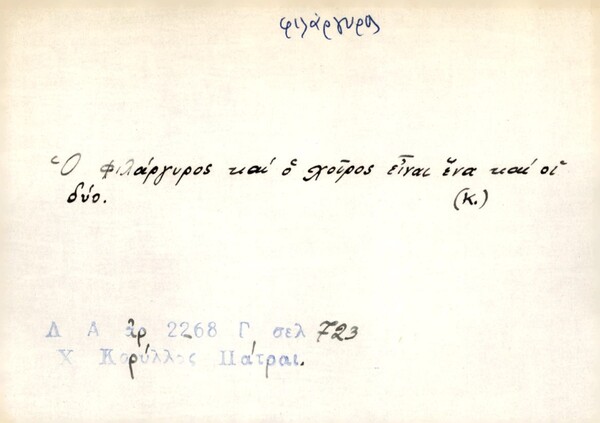 φιλάργυρος
Ὁ φιλάργυρος καί ὁ χοῖρος εἶναι ἕνα καί οἱ
δύο. (κ.)
Λ Α ἀρ 2268 Γ σελ 723
Χ Κορύλλος Πάτραι.